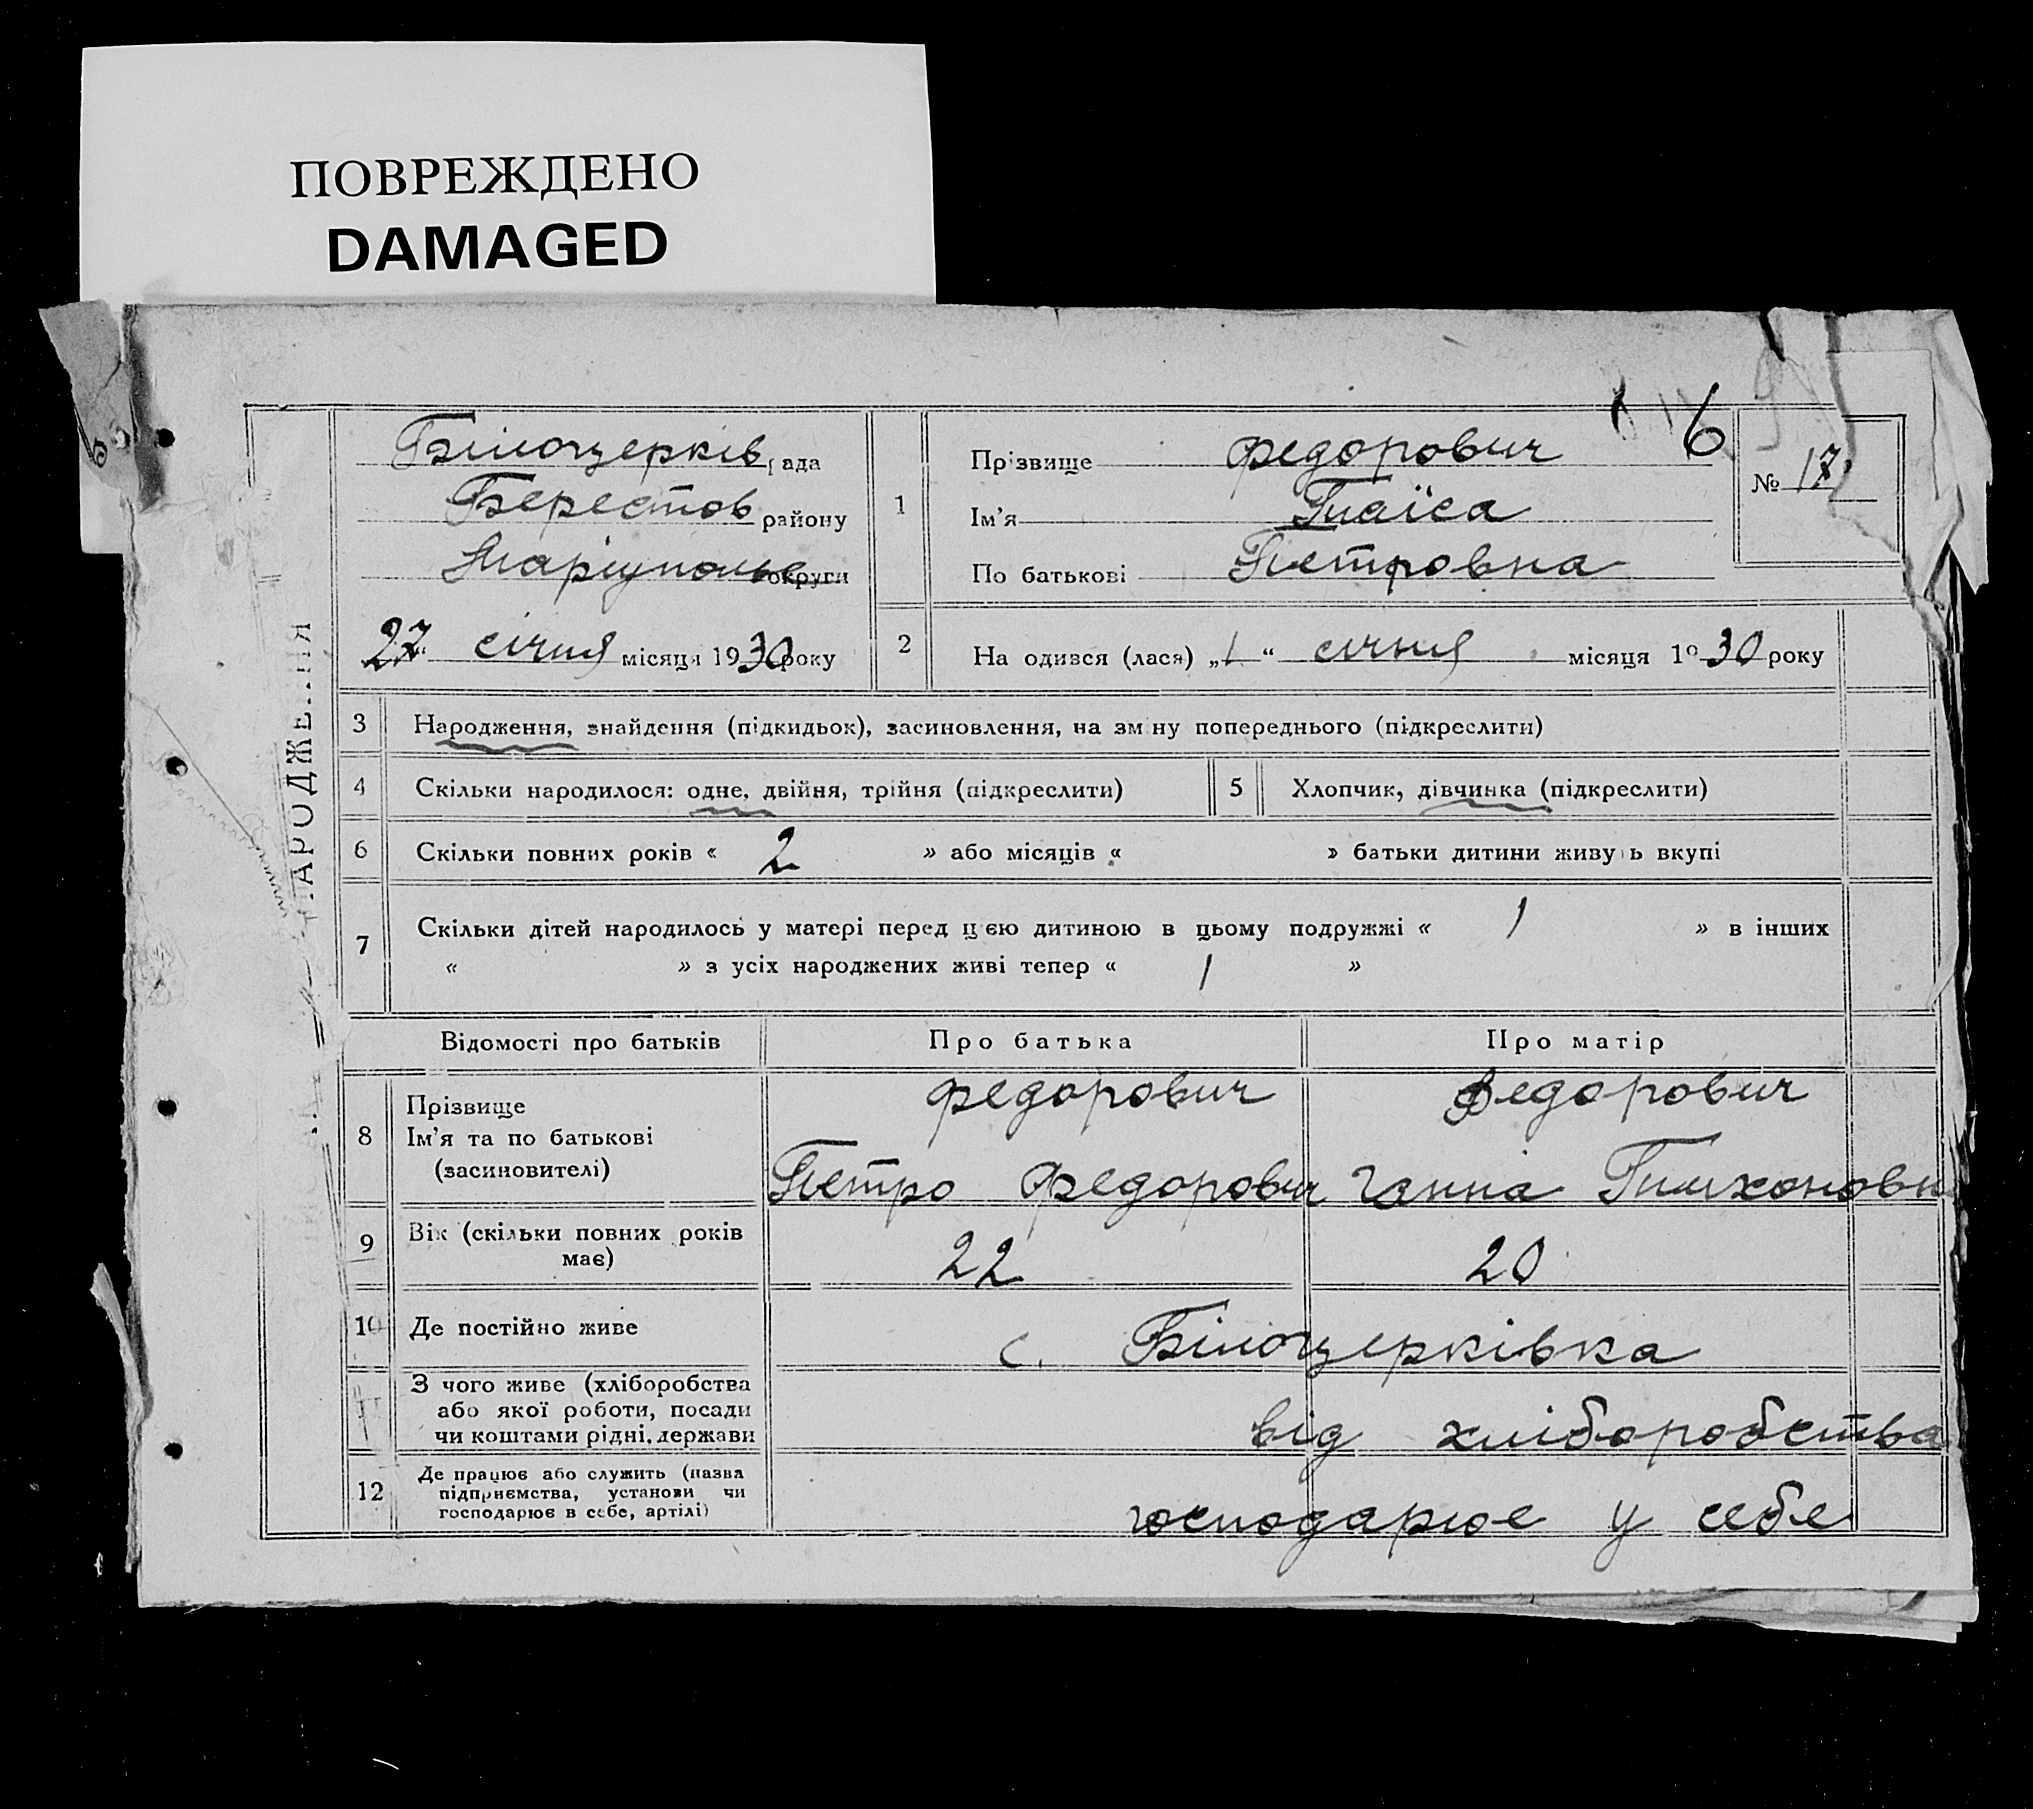 ПОВРЕЖДЕНО
DAMAGED
6
Білоцерків рада
Берестов району
Маріупольс округи
27 січня місяця 1930 року
1
Прізвище Федорович
Ім'я Таїса
По батькові Петровна
№ 17
2
На одився (лася) „1“ січня місяця 19 30 року
НАРОДЖЕННЯ
3 Народження, знайдення (підкидьок), засиновлення, на зміну попереднього (підкреслити)
4 Скільки народилося: одне, двійня, трійня (підкреслити)
5 Хлопчик, дівчинка (підкреслити)
6 Скільки повних років « 2 » або місяців « » батьки дитини живуть вкупі
7 Скільки дітей народилось у матері перед цією дитиною в цьому подружжі « 1 » в інших
« » з усіх народжених живі тепер « 1 »
Відомості про батьків Про батька Про матір
8 Прізвище
Ім'я та по батькові
(засиновителі)
Федорович
Петро Федорович
Федорович
Ганна Тимхоновн
9 Вік (скільки повних років
має)
22 20
10 Де постійно живе с. Білоцерківка
11 З чого живе (хліборобства
або якої роботи, посади
чи коштами рідні, держави
від хліборобства
12 Де працює або служить (назва
підприємства, установи чи
господарює в себе, артілі)
господарює у себе